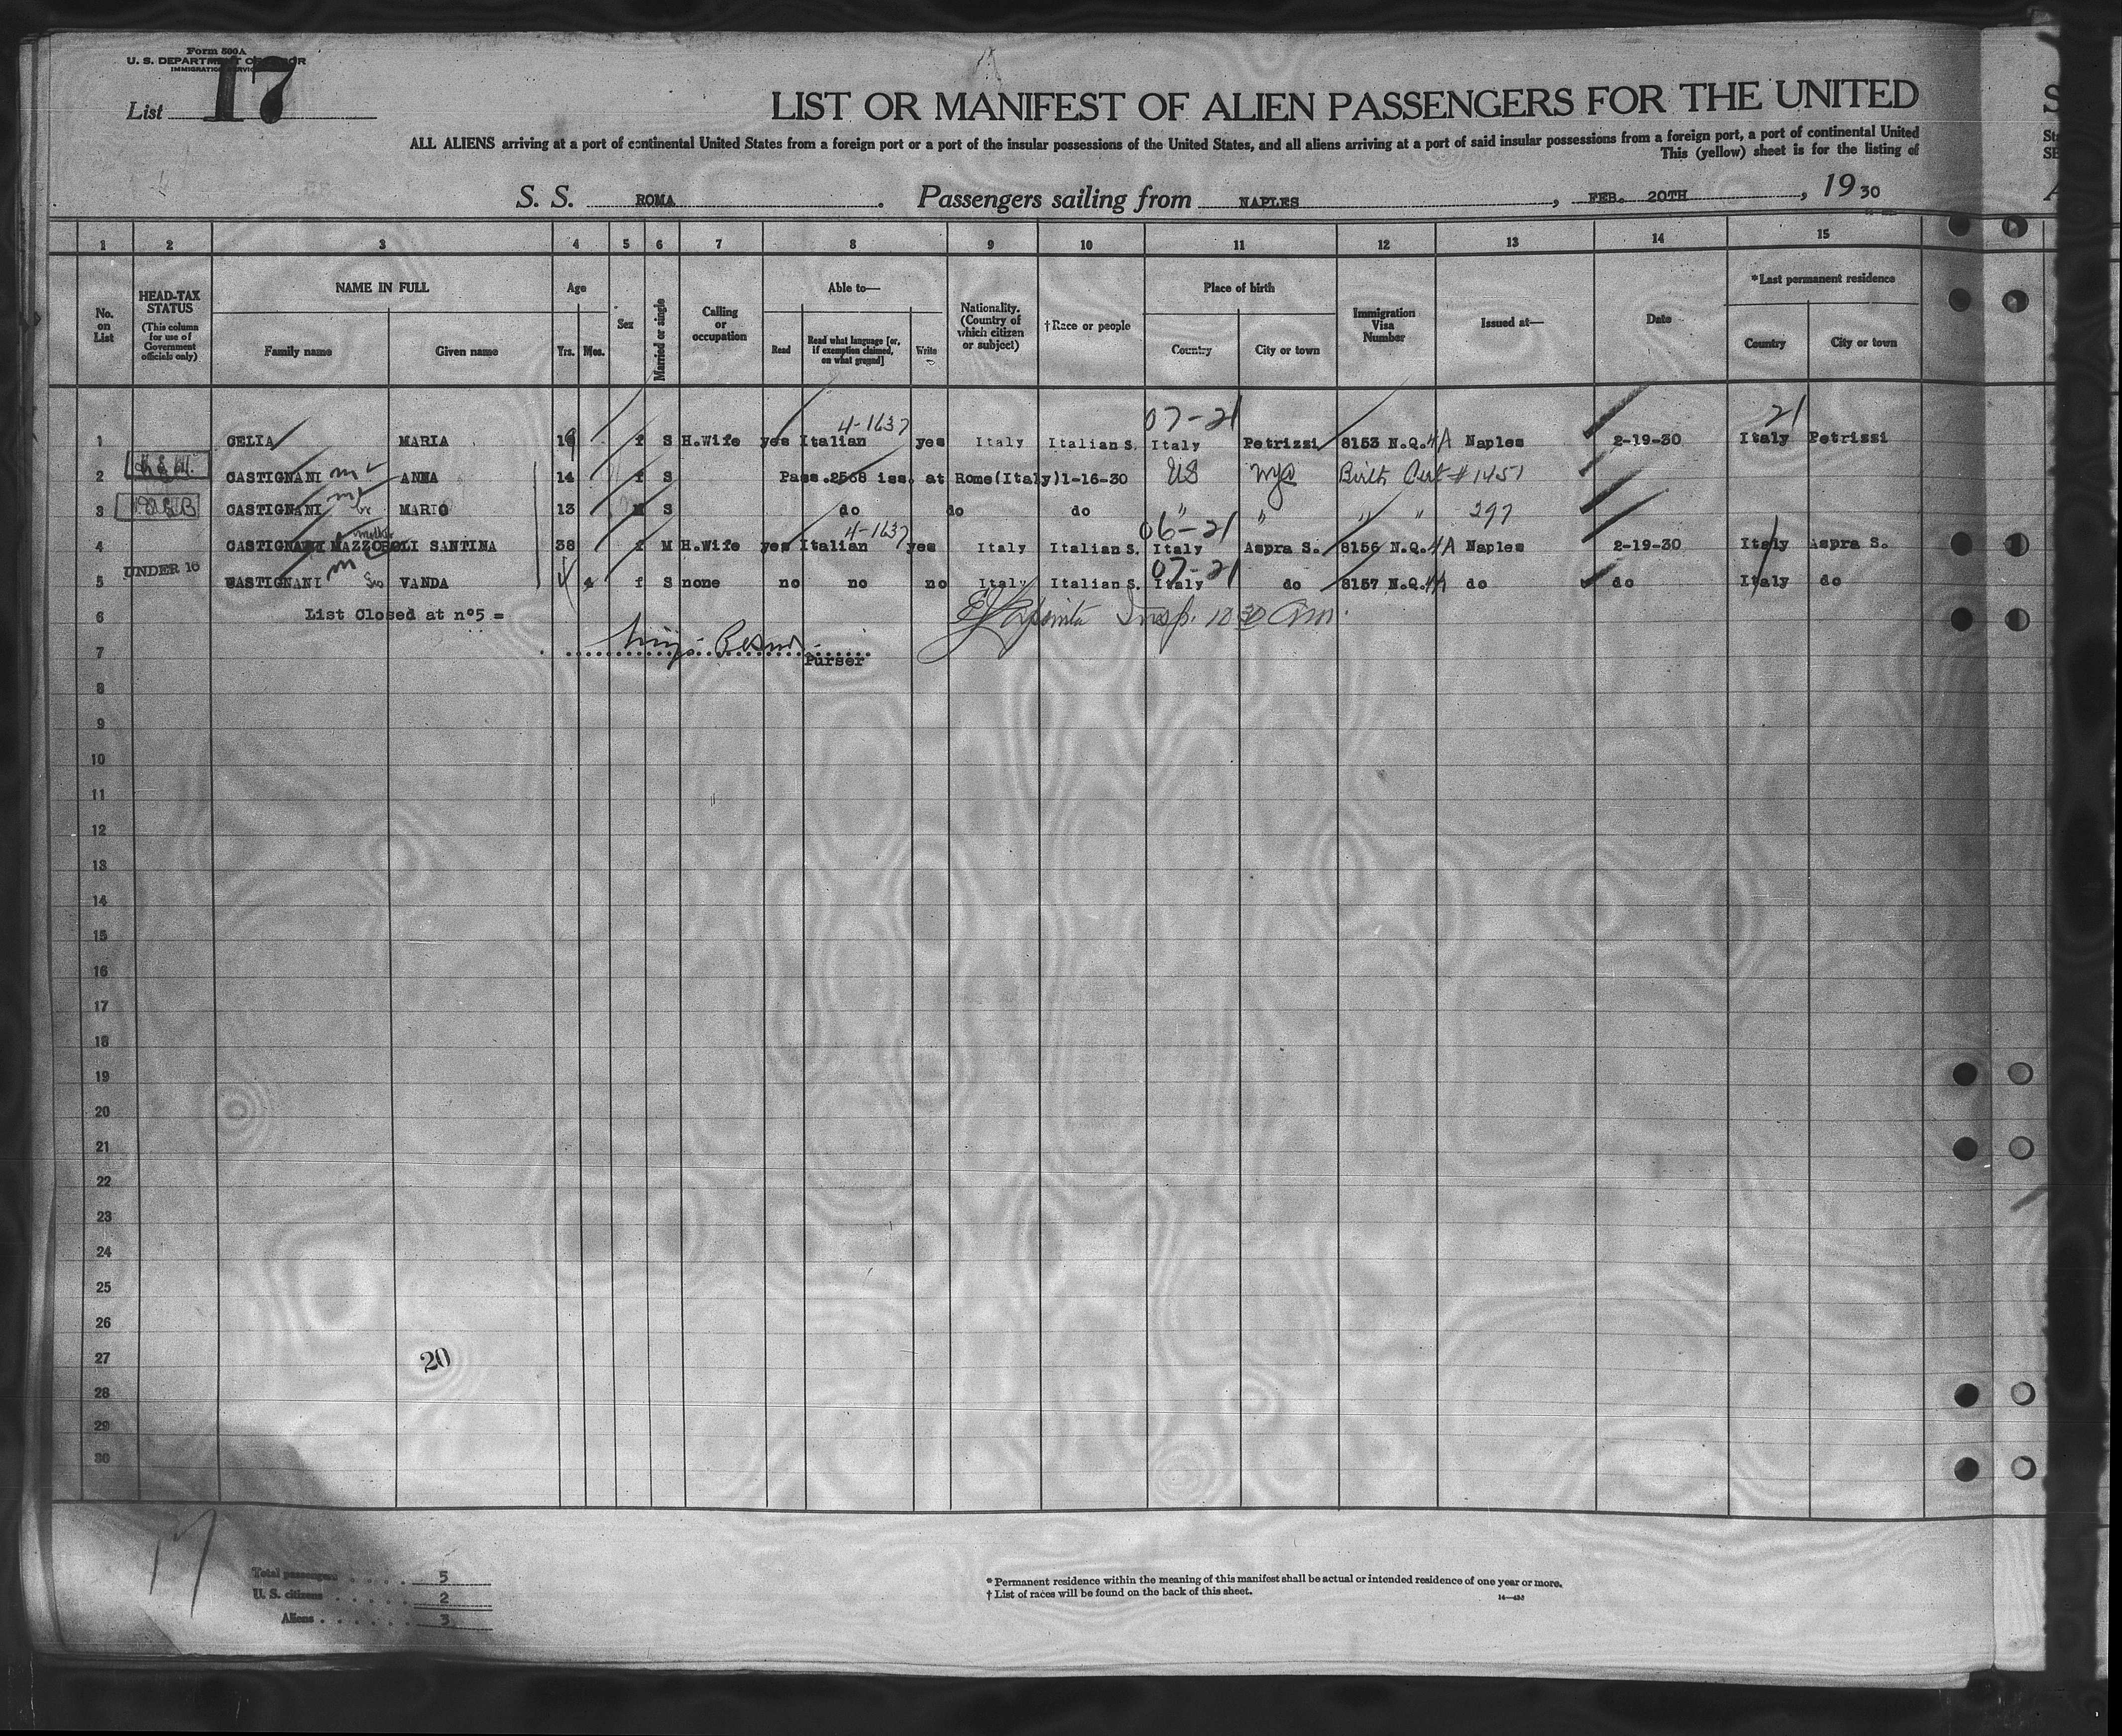 Form 500A
U. S. DEPARTMENT OF LABOR
IMMIGRATION SERVICE
List 17
LIST OR MANIFEST OF ALIEN PASSENGERS FOR THE UNITED
ALL ALIENS arriving at a port of continental United States from a foreign port or a port of the insular possessions of the United States, and all aliens arriving at a port of said insular possessions from a foreign port, a port of continental United
This (yellow) sheet is for the listing of
S. S. ROMA. Passengers sailing from NAPLES, FEB. 20TH, 1930
1 2 3 4 5 6 7 8 9 10 11 12 13 14 15
No. on List
HEAD-TAX STATUS (This column for use of Government officials only)
NAME IN FULL
Family name Given name
Age
Yrs. Mos.
Sex
Married or single
Calling or occupation
Able to—
Read Read what language [or, if exemption claimed, on what ground] Write
Nationality. (Country of which citizen or subject)
†Race or people
Place of birth
Country City or town
Immigration Visa Number
Issued at—
Date
*Last permanent residence
Country City or town
4-1637 07-21 21
1 CELIA MARIA 19 f S H.Wife yes Italian yes Italy Italian S. Italy Petrizzi 8153 N.Q. 4A Naples 2-19-30 Italy Petrissi
2 CASTIGNANI ANNA 14 f S Pass.2568 iss. at Rome(Italy)1-16-30 US nyc Birth Cert # 1451
3 CASTIGNANI br MARIO 13 M S do do do " " " " 297
mother 4-1637 06-21
4 CASTIGNANI MAZZOCOLI SANTINA 38 f M H.Wife yes Italian yes Italy Italian S. Italy Aspra S. 8156 N.Q. 4A Naples 2-19-30 Italy Aspra S.
UNDER 16 07-21
5 CASTIGNANI sis VANDA 4 f S none no no no Italy Italian S. Italy do 8157 N.Q. 4A do do Italy do
6 List Closed at n°5 = Insp. 10 30 Am.
7 Purser
8
9
10
11
12
13
14
15
16
17
18
19
20
21
22
23
24
25
26
27 20
28
29
30
17
Total passengers 5
U. S. citizens 2
Aliens 3
* Permanent residence within the meaning of this manifest shall be actual or intended residence of one year or more.
† List of races will be found on the back of this sheet.